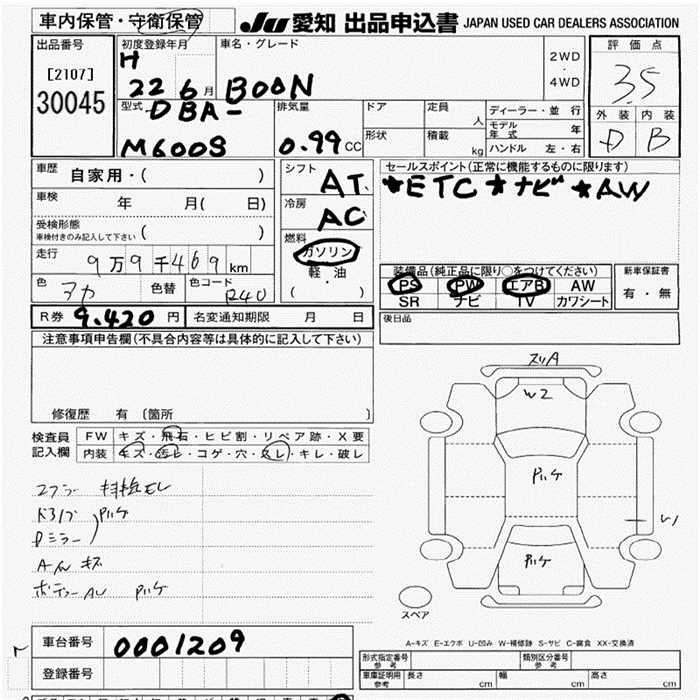 車内保管・守衛保管
JU 愛知 出品申込書 JAPAN USED CAR DEALERS ASSOCIATION
出品番号 [2107] 30045
初度登録年月 H 22 6月
車名・グレード BOON
2WD・4WD
評価点 3.5
外装 D 内装 B
型式 DBA-M600S
排気量 0.99 CC
ドア
形状
定員 人
積載 kg
ディーラー・並行
モデル年式 年
ハンドル 左・右
車歴 自家用・( )
車検 年 月( 日)
受検形態 車検付きのみ記入して下さい ( )
走行 9万9千469km
色 アカ 色替 色コード R40
シフト AT
冷房 AC
燃料 ガソリン 軽・油 ( )
セールスポイント(正常に機能するものに限ります)
★ETC ★ナビ ★AW
装備品(純正品に限り○をつけてください)
PS PW エアB AW
SR ナビ TV カワシート
新車保証書 有・無
R券 9.420 円 名変通知期限 月 日
後日品
注意事項申告欄(不具合内容等は具体的に記入して下さい)
修復歴 有 〔箇所 〕
検査員記入欄 FW キズ・飛石・ヒビ割・リペア跡・X要
内装 キズ・汚レ・コゲ・穴・スレ・キレ・破レ
A/W キズ
スリA
W2
スペア
A-キズ E-エクボ U-凹み W-補修跡 S-サビ C-腐食 XX-交換済
車台番号 0001209
登録番号
形式指定番号 参考 類別区分番号 参考
車庫証明用 参考 長さ cm 幅 cm 高さ cm